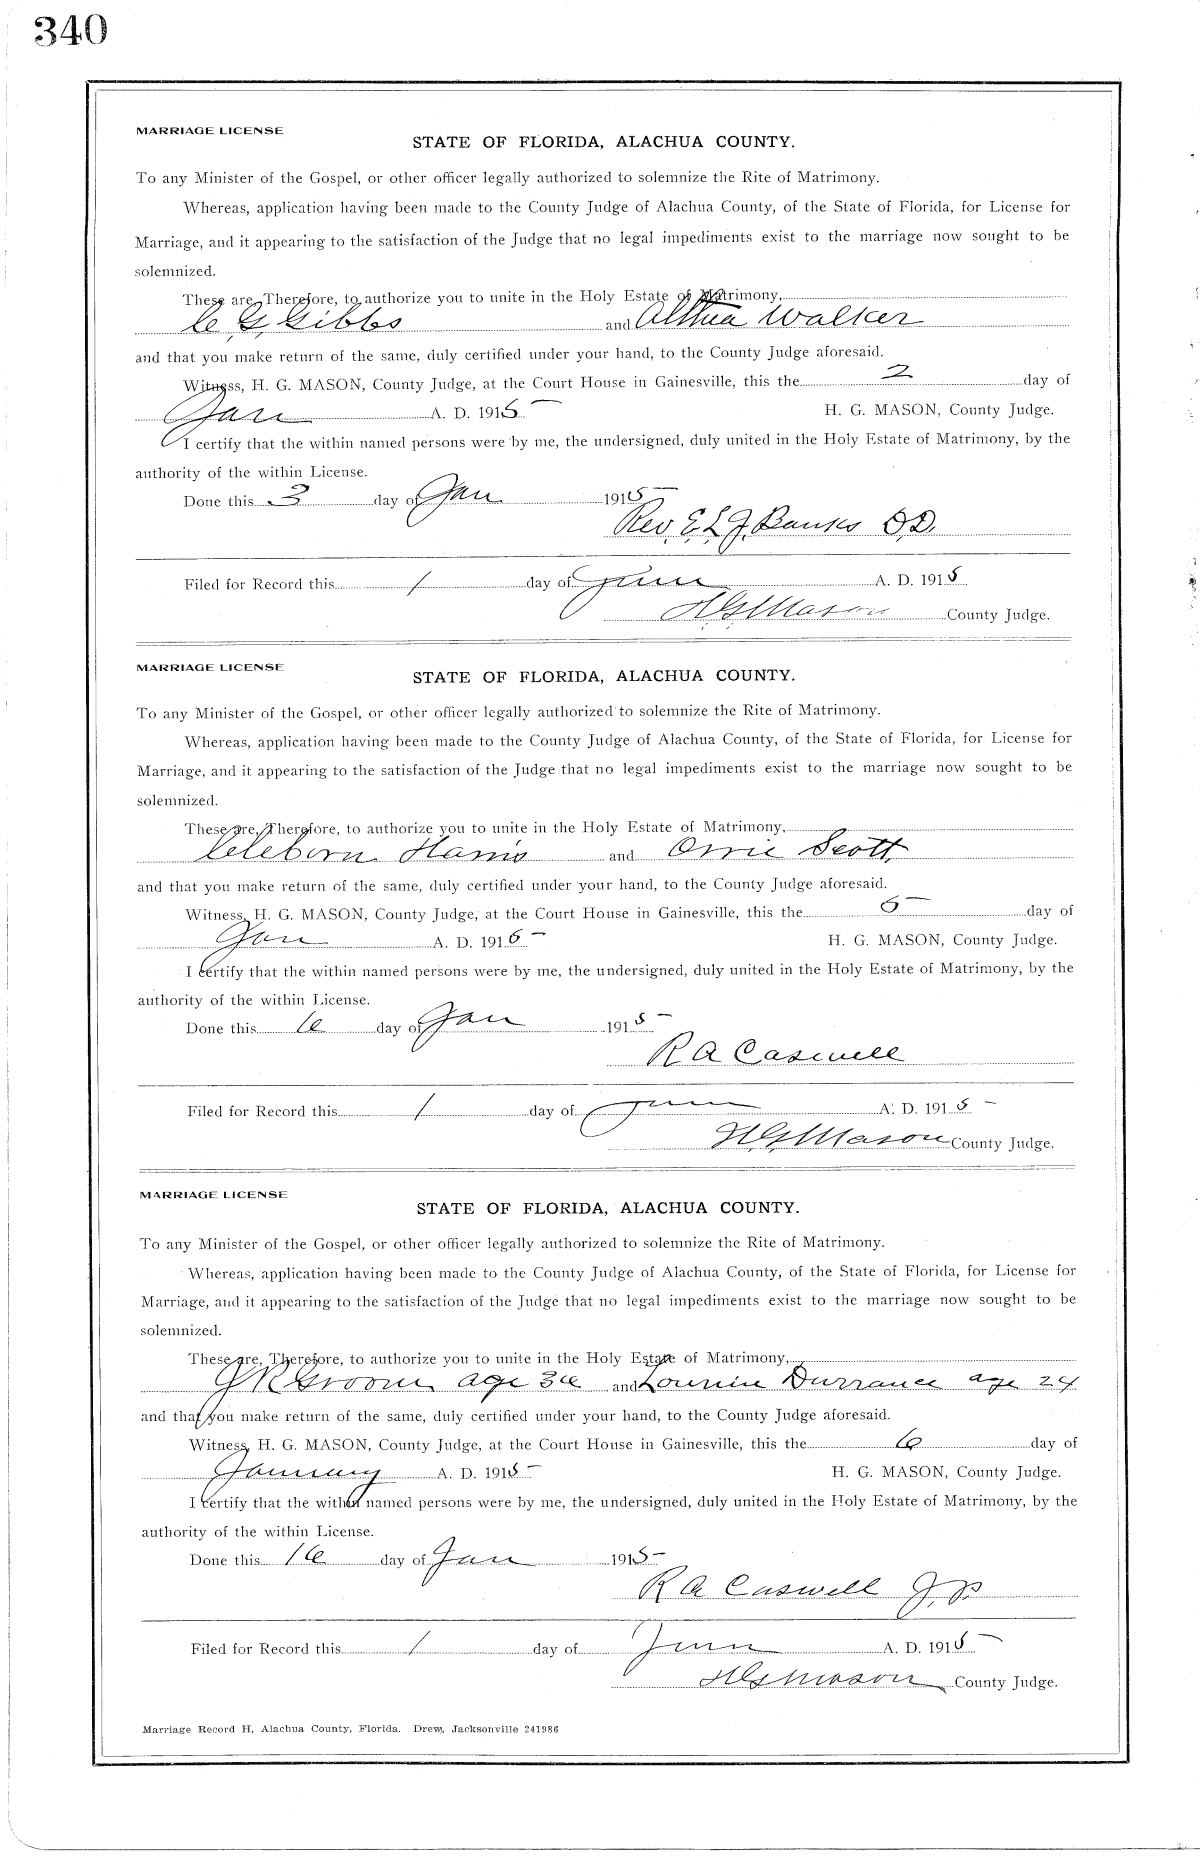 340
MARRIAGE LICENSE
STATE OF FLORIDA, ALACHUA COUNTY.
To any Minister of the Gospel, or other officer legally authorized to solemnize the Rite of Matrimony.
Whereas, application having been made to the County Judge of Alachua County, of the State of Florida, for License for
Marriage, and it appearing to the satisfaction of the Judge that no legal impediments exist to the marriage now sought to be
solemnized.
These are, Therefore, to authorize you to unite in the Holy Estate of Matrimony,
C. G. Gibbs and Althea Walker
and that you make return of the same, duly certified under your hand, to the County Judge aforesaid.
Witness, H. G. MASON, County Judge, at the Court House in Gainesville, this the 2 day of
Jan A. D. 1915 H. G. MASON, County Judge.
I certify that the within named persons were by me, the undersigned, duly united in the Holy Estate of Matrimony, by the
authority of the within License.
Done this 3 day of Jan 1915
Rev. E. L. J. Banks D.D.
Filed for Record this 1 day of June A. D. 1915
H. G. Mason County Judge.
MARRIAGE LICENSE
STATE OF FLORIDA, ALACHUA COUNTY.
To any Minister of the Gospel, or other officer legally authorized to solemnize the Rite of Matrimony.
Whereas, application having been made to the County Judge of Alachua County, of the State of Florida, for License for
Marriage, and it appearing to the satisfaction of the Judge that no legal impediments exist to the marriage now sought to be
solemnized.
These are, Therefore, to authorize you to unite in the Holy Estate of Matrimony,
Cleborn Harris and Orrie Scott
and that you make return of the same, duly certified under your hand, to the County Judge aforesaid.
Witness, H. G. MASON, County Judge, at the Court House in Gainesville, this the 5 day of
Jan A. D. 1915 H. G. MASON, County Judge.
I certify that the within named persons were by me, the undersigned, duly united in the Holy Estate of Matrimony, by the
authority of the within License.
Done this 16 day of Jan 1915
R A Caswell
Filed for Record this 1 day of June A. D. 1915
H. G. Mason County Judge.
MARRIAGE LICENSE
STATE OF FLORIDA, ALACHUA COUNTY.
To any Minister of the Gospel, or other officer legally authorized to solemnize the Rite of Matrimony.
Whereas, application having been made to the County Judge of Alachua County, of the State of Florida, for License for
Marriage, and it appearing to the satisfaction of the Judge that no legal impediments exist to the marriage now sought to be
solemnized.
These are, Therefore, to authorize you to unite in the Holy Estate of Matrimony,
J R Groom age 36 and Durrance age 24
and that you make return of the same, duly certified under your hand, to the County Judge aforesaid.
Witness, H. G. MASON, County Judge, at the Court House in Gainesville, this the 6 day of
January A. D. 1915 H. G. MASON, County Judge.
I certify that the within named persons were by me, the undersigned, duly united in the Holy Estate of Matrimony, by the
authority of the within License.
Done this 16 day of Jan 1915
R A Caswell J. P.
Filed for Record this 1 day of June A. D. 1915
H G Mason County Judge.
Marriage Record H, Alachua County, Florida. Drew, Jacksonville 241986